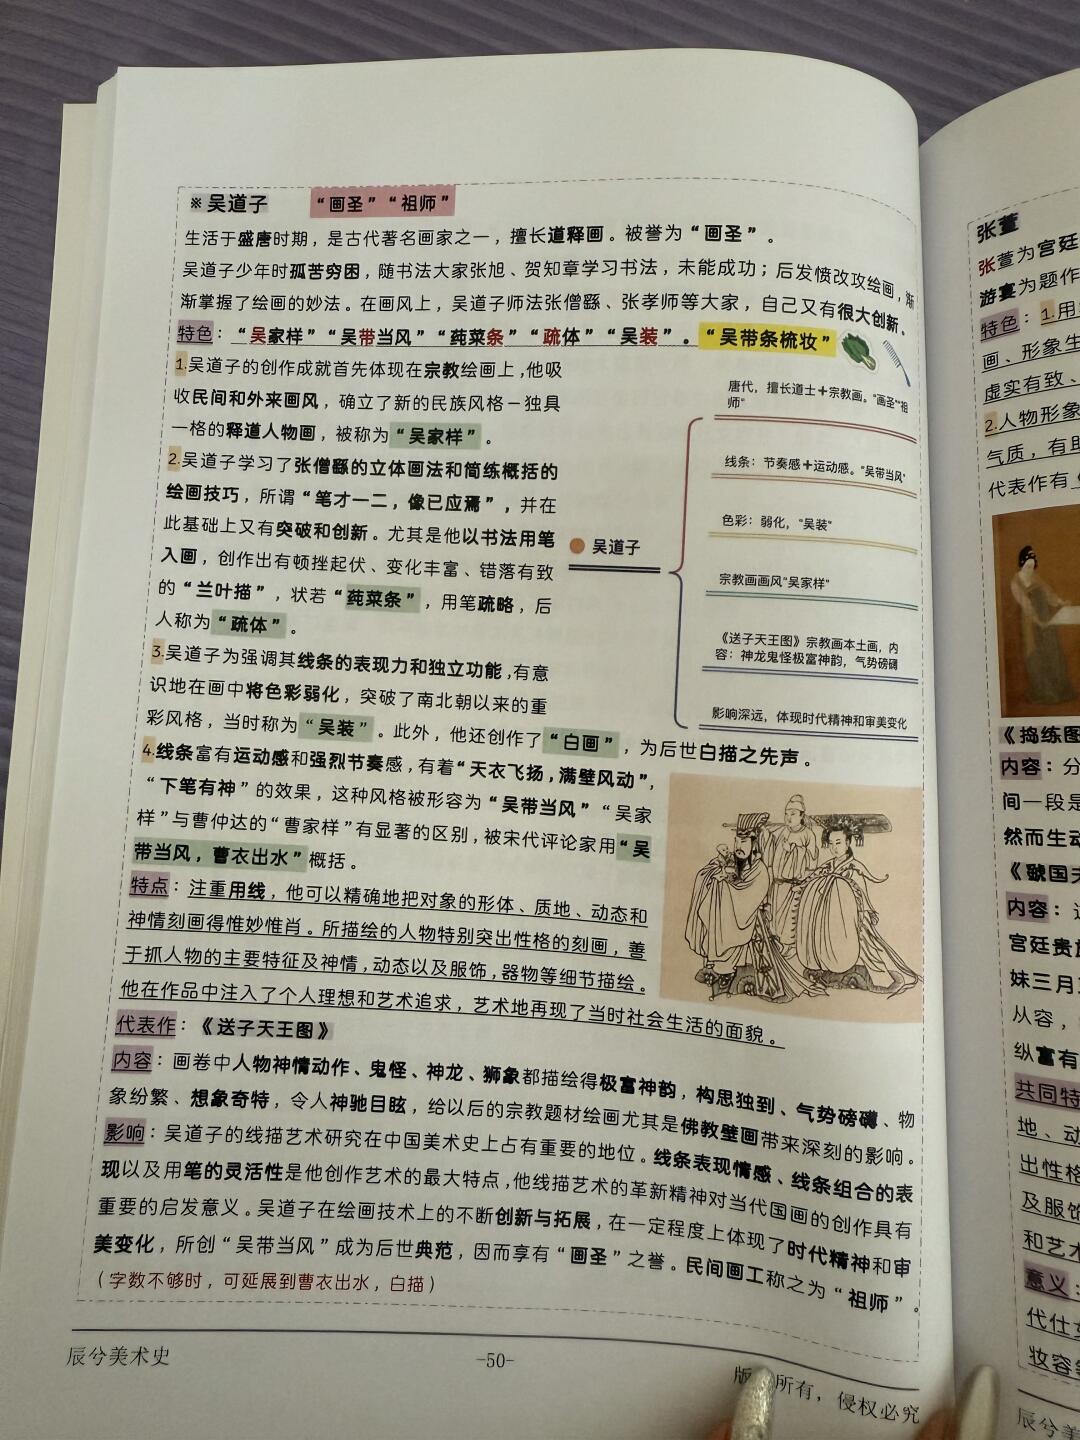 ※ 吴道子 “画圣”“祖师”
生活于盛唐时期，是古代著名画家之一，擅长道释画。被誉为“画圣”。
吴道子少年时孤苦穷困，随书法大家张旭、贺知章学习书法，未能成功；后发愤改攻绘画，渐
渐掌握了绘画的妙法。在画风上，吴道子师法张僧繇、张孝师等大家，自己又有很大创新。
特色：“吴家样”“吴带当风”“莼菜条”“疏体”“吴装”。“吴带条梳妆”
1.吴道子的创作成就首先体现在宗教绘画上，他吸
收民间和外来画风，确立了新的民族风格－独具
一格的释道人物画，被称为“吴家样”。
2.吴道子学习了张僧繇的立体画法和简练概括的
绘画技巧，所谓“笔才一二，像已应焉”，并在
此基础上又有突破和创新。尤其是他以书法用笔
入画，创作出有顿挫起伏、变化丰富、错落有致
的“兰叶描”，状若“莼菜条”，用笔疏略，后
人称为“疏体”。
3.吴道子为强调其线条的表现力和独立功能，有意
识地在画中将色彩弱化，突破了南北朝以来的重
彩风格，当时称为“吴装”。此外，他还创作了“白画”，为后世白描之先声。
吴道子
唐代，擅长道士＋宗教画。“画圣”“祖
师”
线条：节奏感＋运动感。“吴带当风”
色彩：弱化，“吴装”
宗教画画风“吴家样”
《送子天王图》宗教画本土画，内
容：神龙鬼怪极富神韵，气势磅礴
影响深远，体现时代精神和审美变化
4.线条富有运动感和强烈节奏感，有着“天衣飞扬，满壁风动”，
“下笔有神”的效果，这种风格被形容为“吴带当风”“吴家
样”与曹仲达的“曹家样”有显著的区别，被宋代评论家用“吴
带当风，曹衣出水”概括。
特点：注重用线，他可以精确地把对象的形体、质地、动态和
神情刻画得惟妙惟肖。所描绘的人物特别突出性格的刻画，善
于抓人物的主要特征及神情，动态以及服饰，器物等细节描绘。
他在作品中注入了个人理想和艺术追求，艺术地再现了当时社会生活的面貌。
代表作：《送子天王图》
内容：画卷中人物神情动作、鬼怪、神龙、狮象都描绘得极富神韵，构思独到、气势磅礴、物
象纷繁、想象奇特，令人神驰目眩，给以后的宗教题材绘画尤其是佛教壁画带来深刻的影响。
影响：吴道子的线描艺术研究在中国美术史上占有重要的地位。线条表现情感、线条组合的表
现以及用笔的灵活性是他创作艺术的最大特点，他线描艺术的革新精神对当代国画的创作具有
重要的启发意义。吴道子在绘画技术上的不断创新与拓展，在一定程度上体现了时代精神和审
美变化，所创“吴带当风”成为后世典范，因而享有“画圣”之誉。民间画工称之为“祖师”。
（字数不够时，可延展到曹衣出水，白描）
辰兮美术史
-50-
版 所有，侵权必究
张萱
张萱为宫廷
游宴为题作
特色：1.用
画、形象生
虚实有致、
2.人物形象
气质，有助
代表作有
《捣练图
内容：分
间一段是
然而生动
《虢国夫
内容：这
宫廷贵族
妹三月
从容，
纵富有
共同特
地、动
出性格
及服饰
和艺术
意义：
代仕女
妆容
辰兮美